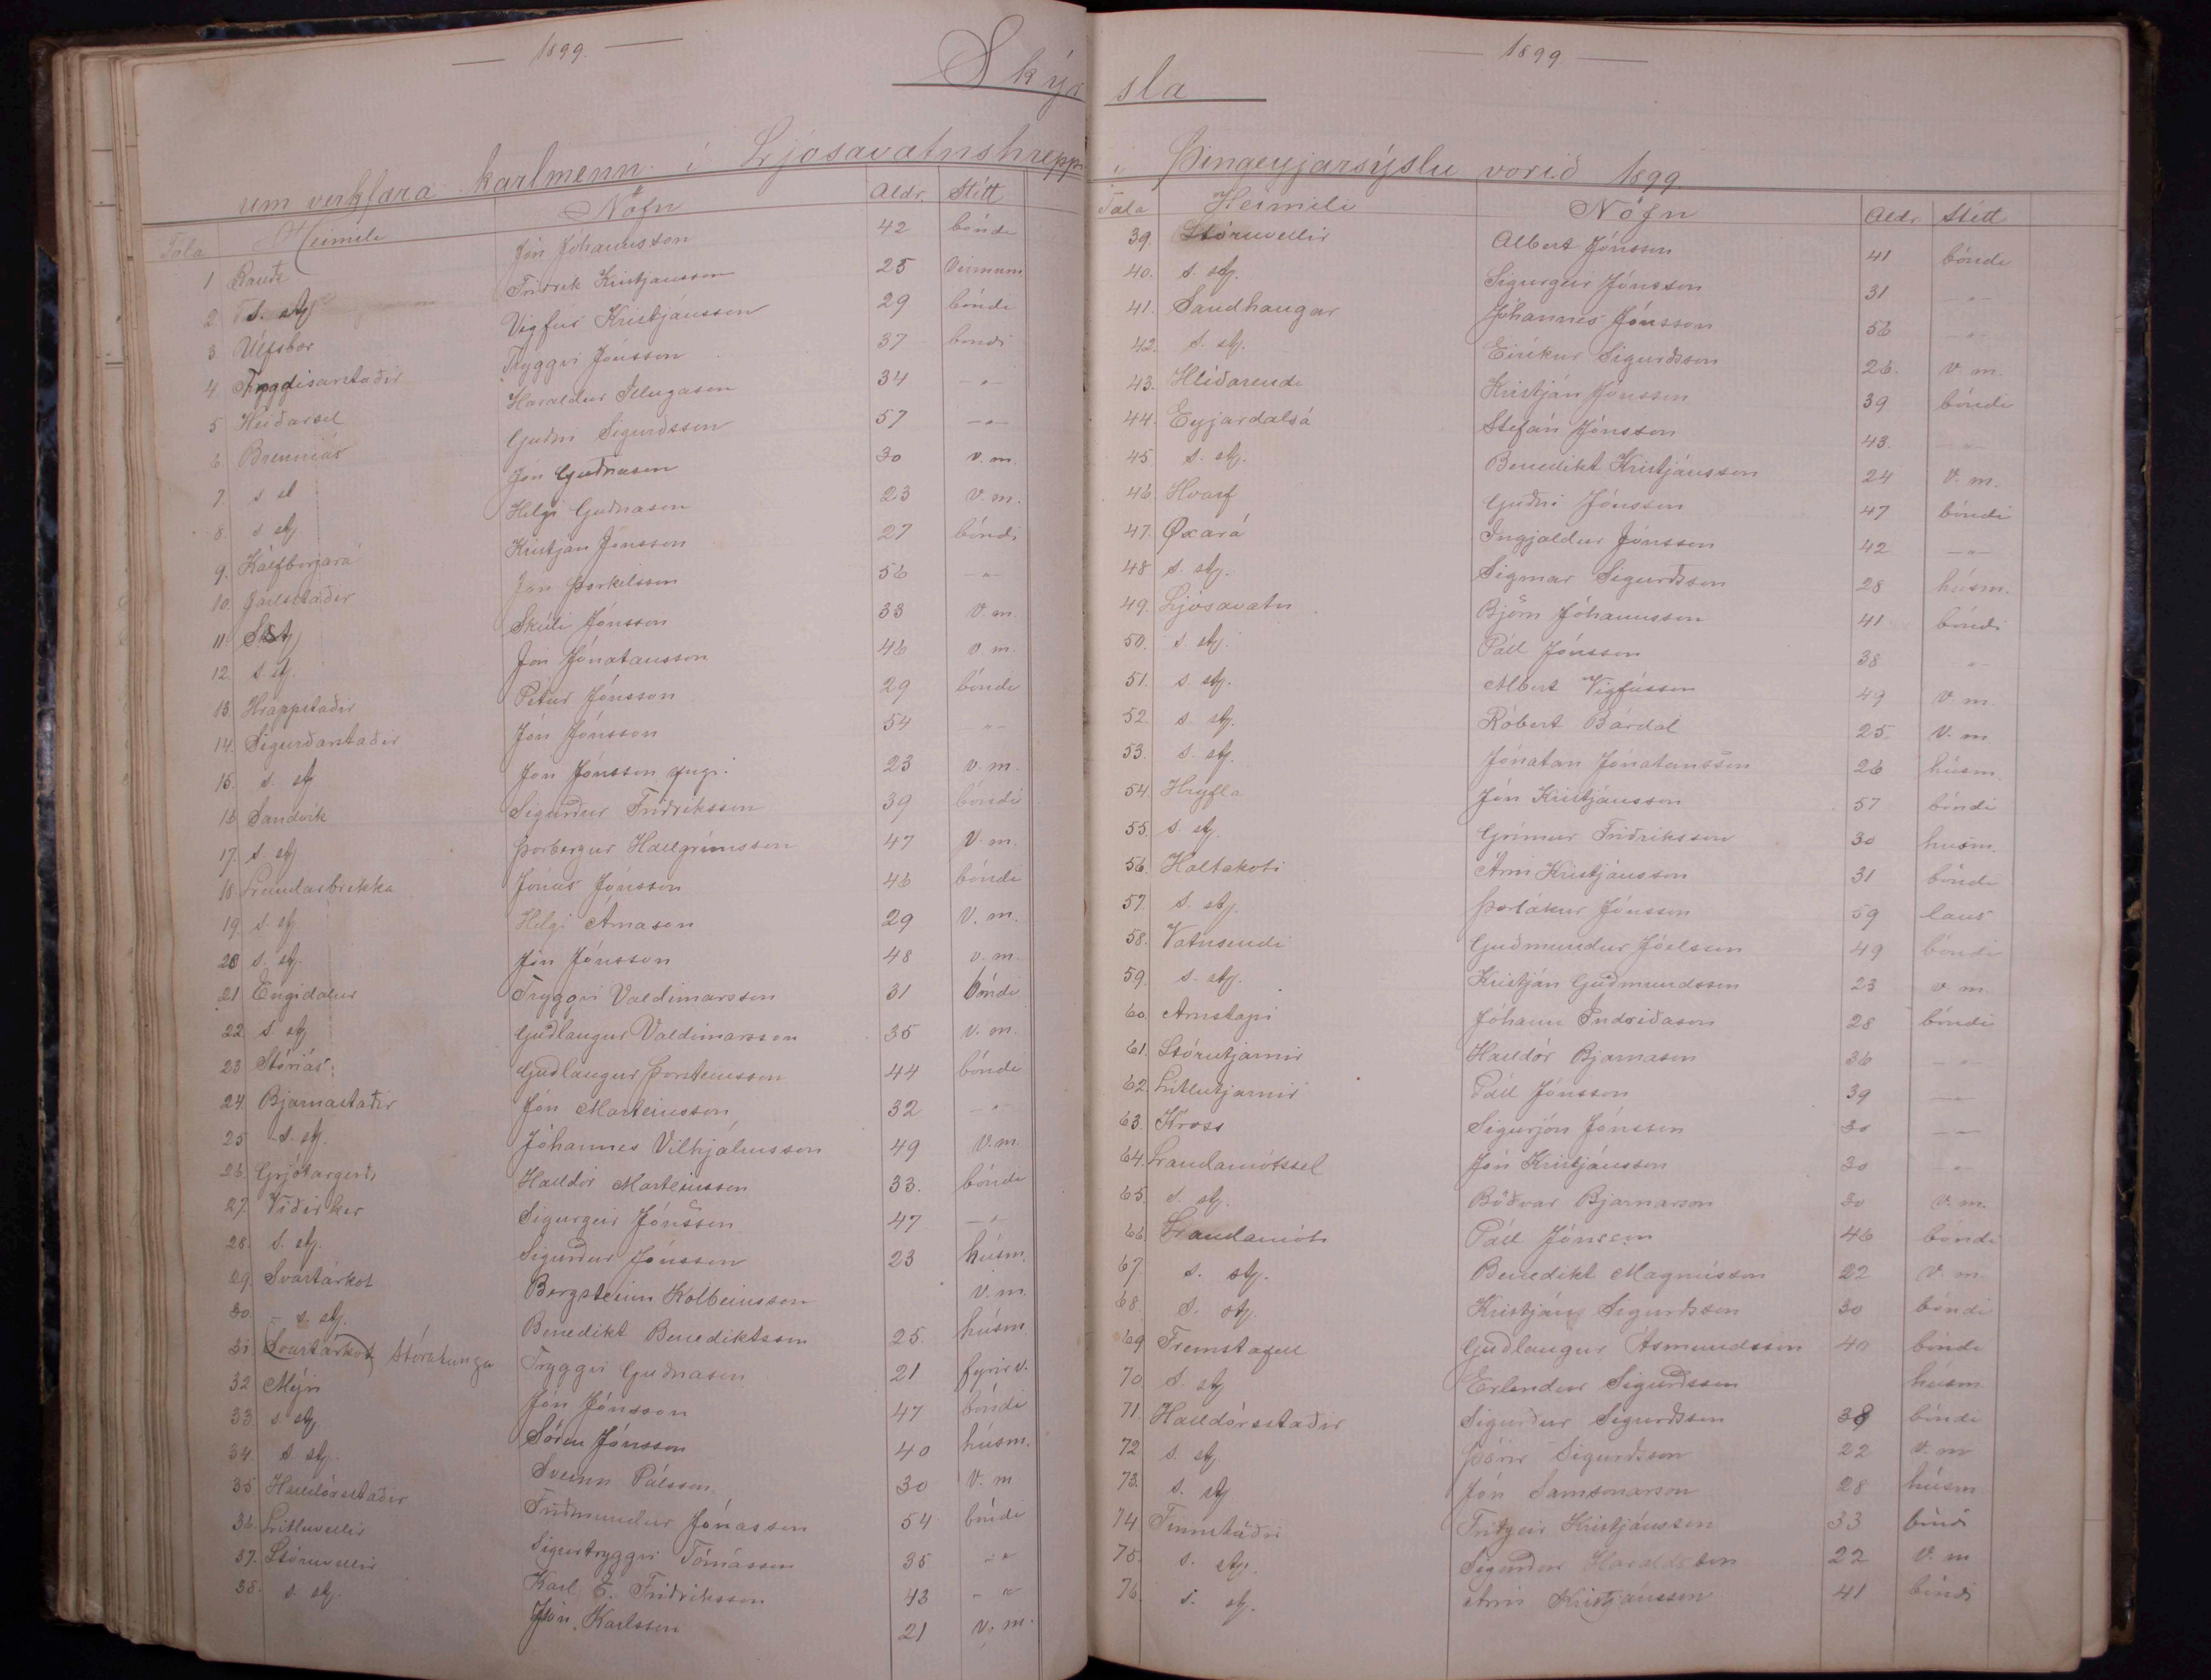 — 1899. —
Skýr
um verkfæra karlmenn í Ljósavatnshreppi
Tala Heimili Nöfn Aldr. Stétt
1 Rauðá Jón Jóhannsson 42 bóndi
2 s. stj Friðrik Kristjánsson 25 Vinnum
3 Úlfsbær Vigfús Kristjánsson 29 bóndi
4 Ingdísarstaðir Tryggvi Jónsson 37 bóndi
5 Heiðarsel Haraldur Illugason 34 „
6. Brenniás Guðni Sigurðsson 57 — „ —
7. s st Jón Guðnason 30 v. m.
8. s stj Helgi Guðnason 23 v. m.
9. Kálfborgará Kristján Jónsson 27 bóndi
10. Jarlstaðir Jón Þorkelsson 56 — „ —
11. S. stj Skúli Jónsson 33 v. m.
12. s. stj. Jón Jónatansson 46 v. m.
13. Hrappstaðir Petur Jónsson 29 bóndi
14. Sigurðarstaðir Jón Jónsson 54 „ —
15. s. stj Jón Jónsson yngi. 23 v. m.
16 Sandvík Sigurður Friðriksson 39 bóndi
17. s. stj Þorbergur Hallgrímsson 47 v. m.
18. Lundarbrekka Jónas Jónsson 46 bóndi
19. s. stj Helgi Árnason 29 v. m.
20 s. stj. Jón Jónsson 48 v. m.
21 Engidalur Tryggvi Valdimarsson 31 bóndi
22. s. stj Guðlaugur Valdimarsson 35 v. m.
23 Stóriás Guðlaugur Þorsteinsson 44 bóndi
24. Bjarnastaðir Jón Marteinsson 32 — „ —
25 s. stj. Jóhannes Vilhjálmsson 49 v. m.
26. Grjótargerði Halldór Marteinsson 33. bóndi
27. Víðirker Sigurgeir Jónsson 47 — „ —
28. s. stj. Sigurður Jónsson 23 húsm.
29 Svartárkot Bergsteinn Kolbeinsson v. m.
30. — s. stj. Benedikt Benediktsson 25 húsm.
31 Svartárkot Stóratunga Tryggvi Guðnason 21 fyrirv.
32 Mýri Jón Jónsson 47 bóndi
33. s. stj Sören Jónsson 40 húsm.
34. s. stj. Sveinn Pálsson 30 v. m
35 Halldórsstaðir Friðmundur Jónasson 54 bóndi
36. Litluvellir Sigurtryggvi Tómásson 35 - „
37. Stóruvellir Karl E. Friðriksson 43 - „
38. s. stj. Jón Karlsson 21 v. m.
— 1899 —
sla
í Þingeyjarsýslu vorið 1899
Tala Heimili Nöfn Aldr Stétt
39. Stóruvellir Albert Jónsson 41 bóndi
40. s. stj. Sigurgeir Jónsson 31 „ —
41. Sandhaugar Jóhannes Jónsson 56 — „ —
42. s. stj. Eiríkur Sigurðsson 26. v. m.
43. Hlíðarendi Kristján Jónsson 39 bóndi
44. Eyjardalsá Stefán Jónsson 43. — „ —
45 s. stj. Benedikt Kristjánsson 24 v. m.
46. Hvarf Guðni Jónsson 47 bóndi
47. Øxará Ingjaldur Jónsson 42 — „ —
48 s. stj. Sigmar Sigurðsson 28 húsm.
49. Ljósavatn Björn Jóhannsson 41 bóndi
50. s stj. Páll Jónsson 38 „ —
51. s. stj. Albert Vigfússon 49 v m.
52. s. stj. Róbert Bárdal 25 v. m
53. s. stj. Jónatan Jónatansson 26 húsm.
54. Hryfla Jón Kristjánsson 57 bóndi
55. s. stj. Grímur Friðriksson 30 húsm.
56. Holtakoti Árni Kristjánsson 31 bóndi
57. s. stj. Þorlákur Jónsson 59 laus
58. Vatnsendi Guðmundur Jóelsson 49 bóndi
59. s. stj. Kristján Guðmundsson 23 v m.
60. Arnstapi Jóhann Indriðason 28 bóndi
61. Stórutjarnir Halldór Bjarnason 36 — „
62. Litlutjarnir Páll Jónsson 39 — „ —
63. Kross Sigurjón Jónsson 30 — „ —
64. Landamótssel Jón Kristjánsson 30 — „ —
65. s. stj. Böðvar Bjarnarson 30 v. m.
66 Landamót Páll Jónsson 46 bóndi
67. s. stj. Benedikt Magnússon 22 v. m
68. s. stj. Kristján Sigurðsson 30 bóndi
69 Fremstafell Guðlaugur Ásmundsson 40 bóndi
70 s. stj Erlendur Sigurðsson húsm
71. Halldórsstaðir Sigurður Sigurðsson 38 bóndi
72. s. stj. Þórir Sigurðsson 22 v. m
73. s. stj Jón Samsonarson 28 húsm
74 Finnstaðir Friðgeir Kristjánsson 33 bóndi
75. s. stj. Sigurður Haraldsson 22 v. m
76. s. stj. Árni Kristjánsson 41 bóndi